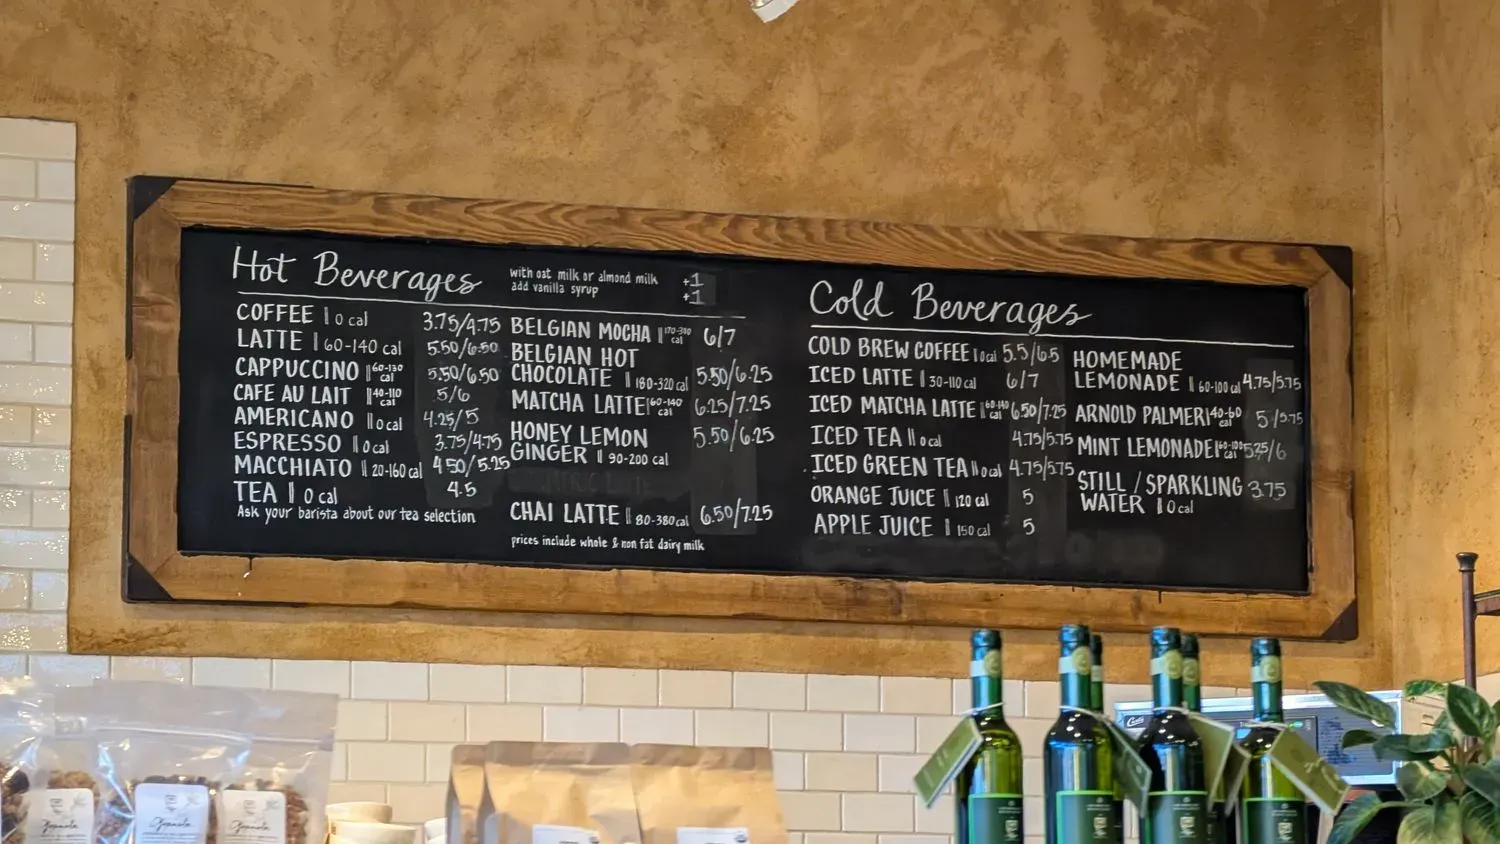 Hot Beverages
with oat milk or almond milk +1
add vanilla syrup +1
COFFEE | 0 cal 3.75/4.75
LATTE | 60-140 cal 5.50/6.50
CAPPUCCINO | 60-130 cal 5.50/6.50
CAFE AU LAIT | 40-110 cal 5/6
AMERICANO | 0 cal 4.25/5
ESPRESSO | 0 cal 3.75/4.75
MACCHIATO | 20-160 cal 4.50/5.25
TEA | 0 cal 4.5
Ask your barista about our tea selection
BELGIAN MOCHA | 170-300 cal 6/7
BELGIAN HOT
CHOCOLATE | 180-320 cal 5.50/6.25
MATCHA LATTE | 60-140 cal 6.25/7.25
HONEY LEMON 5.50/6.25
GINGER | 90-200 cal
CHAI LATTE | 80-380 cal 6.50/7.25
prices include whole & non fat dairy milk
Cold Beverages
COLD BREW COFFEE | 0 cal 5.5/6.5
ICED LATTE | 30-110 cal 6/7
ICED MATCHA LATTE | 60-140 cal 6.50/7.25
ICED TEA | 0 cal 4.75/5.75
ICED GREEN TEA | 0 cal 4.75/5.75
ORANGE JUICE | 120 cal 5
APPLE JUICE | 150 cal 5
HOMEMADE
LEMONADE | 60-100 cal 4.75/5.75
ARNOLD PALMER | 40-60 cal 5/5.75
MINT LEMONADE | 60-100 cal 5.25/6
STILL / SPARKLING 3.75
WATER | 0 cal
Granola
Granola
Curtis